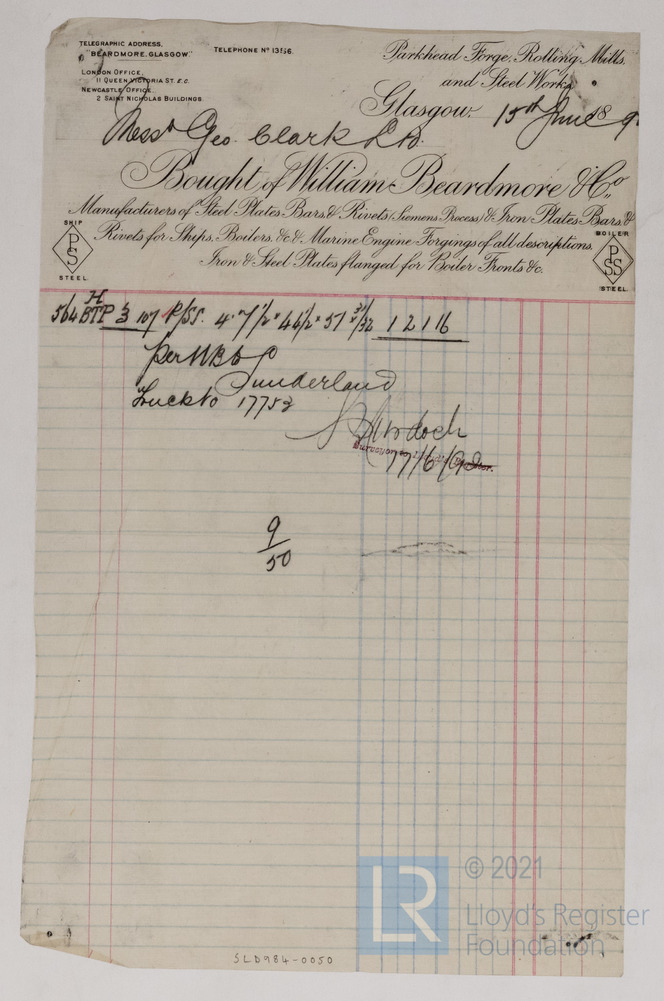 TELEGRAPHIC ADDRESS,
"BEARDMORE, GLASGOW."
TELEPHONE No 1356.
LONDON OFFICE,
11 QUEEN VICTORIA ST. E.C.
NEWCASTLE OFFICE,
2 SAINT NICHOLAS BUILDINGS.
Parkhead Forge, Rolling Mills,
and Steel Works,
Glasgow. 15th June 189
Messrs Geo. Clark Ld.
Bought of William Beardmore & Co.,
Manufacturers of Steel Plates Bars & Rivets (Siemens Process) & Iron Plates Bars &
Rivets for Ships, Boilers, &c & Marine Engine Forgings of all descriptions.
Iron & Steel Plates flanged for Boiler Fronts &c.
SHIP
PS
STEEL
BOILER
PSS
STEEL.
564 BTP 3 107 P/SS. 4.7 1/2 × 44 1/2 × 51 /32 1 2 1 16
per NB
Sunderland
Truck No 17753
Murdoch
17/6/92
9
50
SLD984-0050
LR
© 2021
Lloyd's Register
Foundation